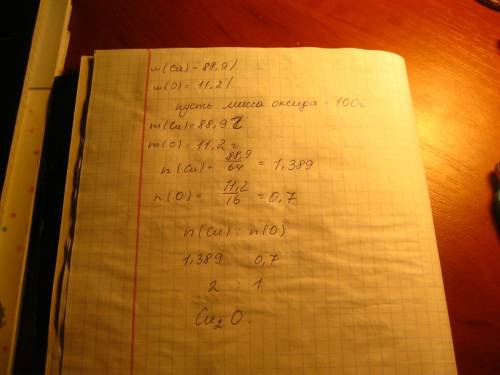 w(Cu) = 88,9%
w(O) = 11,2%
пусть масса оксида = 100г
m(Cu) = 88,9 г
m(O) = 11,2 г
n(Cu) = 88,9/64 = 1,389
n(O) = 11,2/16 = 0,7
n(Cu) : n(O)
1,389 0,7
2 : 1
Cu₂O.